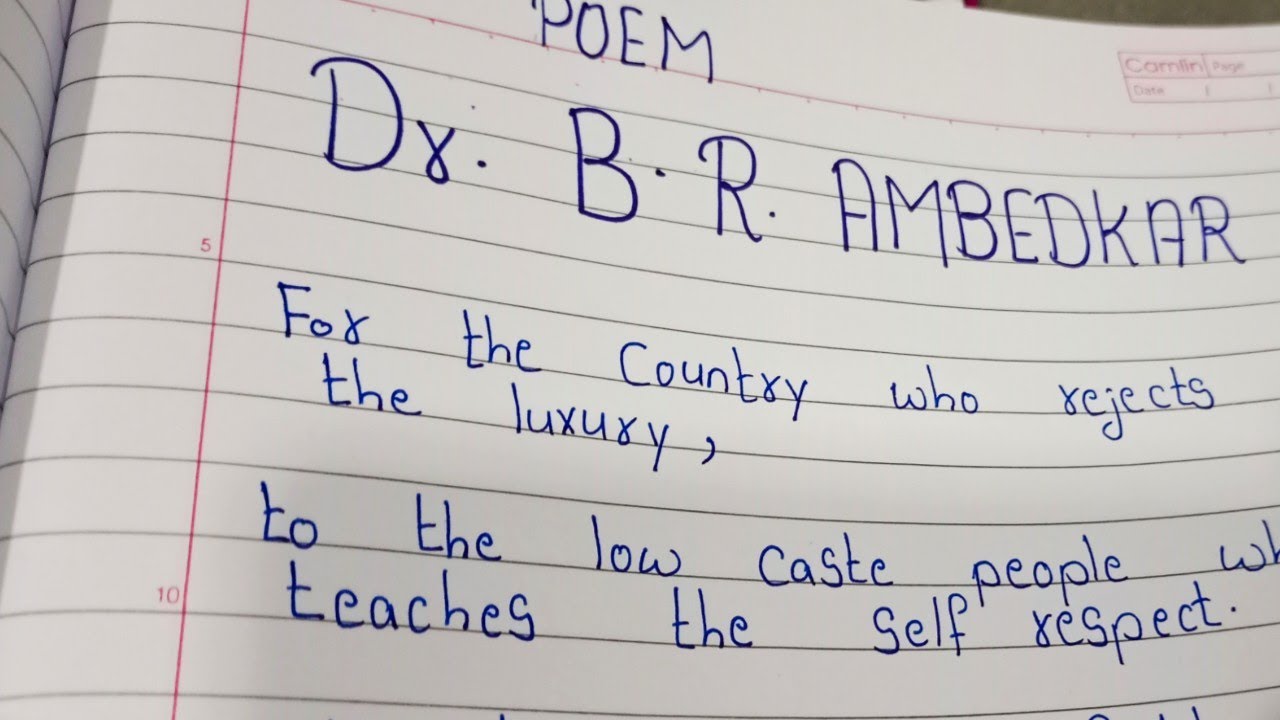 POEM
Camlin Page
Date
Dr. B. R. AMBEDKAR
5
For the Country who rejects
the luxury,
to the low caste people
10
teaches the self respect.